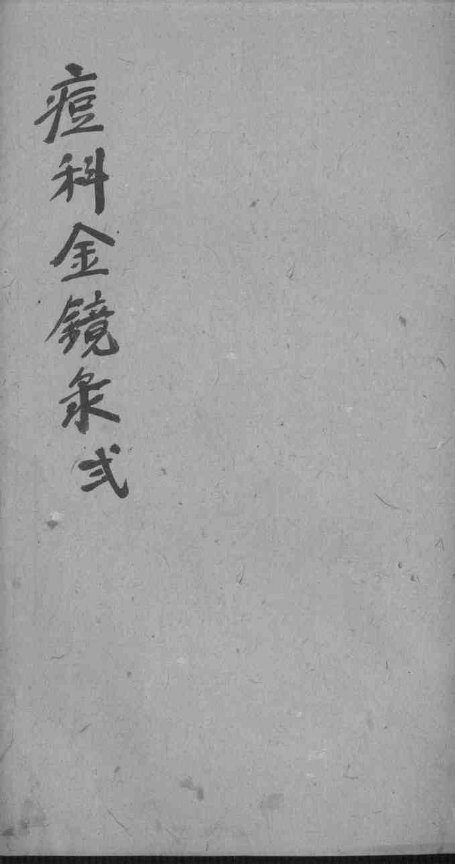 痘科金鏡彔弍